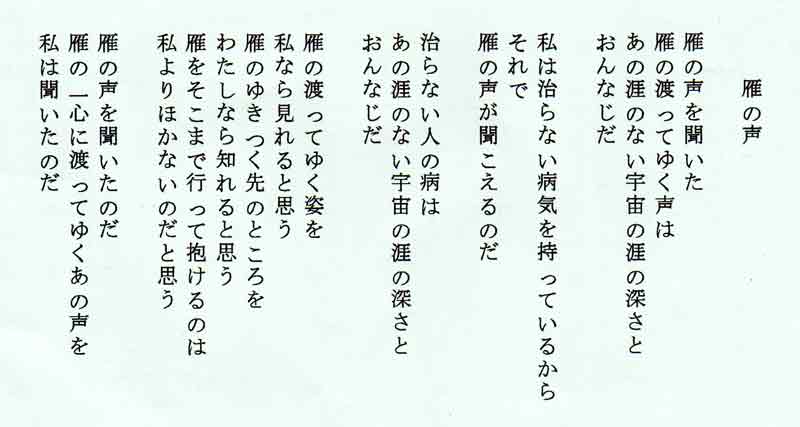 雁の声
雁の声を聞いた
雁の渡ってゆく声は
あの涯のない宇宙の涯の深さと
おんなじだ
私は治らない病気を持っているから
それで
雁の声が聞こえるのだ
治らない人の病は
あの涯のない宇宙の涯の深さと
おんなじだ
雁の渡ってゆく姿を
私なら見れると思う
雁のゆきつく先のところを
わたしなら知れると思う
雁をそこまで行って抱けるのは
私よりほかないのだと思う
雁の声を聞いたのだ
雁の一心に渡ってゆくあの声を
私は聞いたのだ